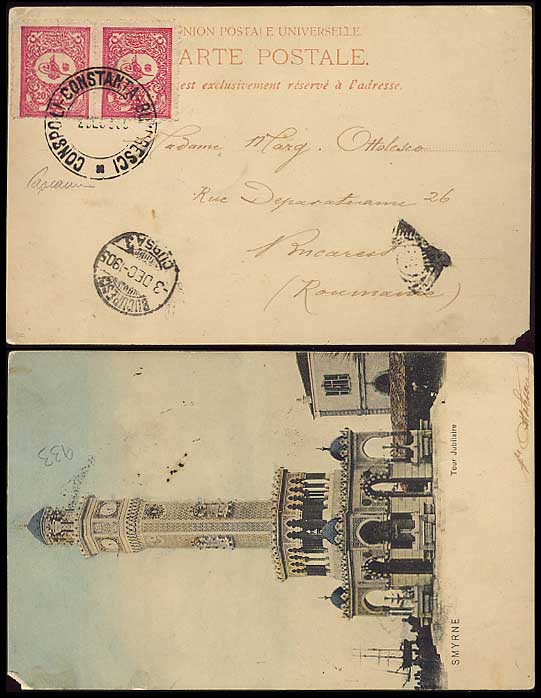 UNION POSTALE UNIVERSELLE.
CARTE POSTALE.
est exclusivement réservé à l'adresse.
CONSPOLI-CONSTANTA-BUCURESCI
Madame Marg. Ottolesco
Rue 26
Bucarest
(Roumanie)
BUCURESCI
3 DEC 1905
CURSA 3
933
Tour Jubilaire
SMYRNE